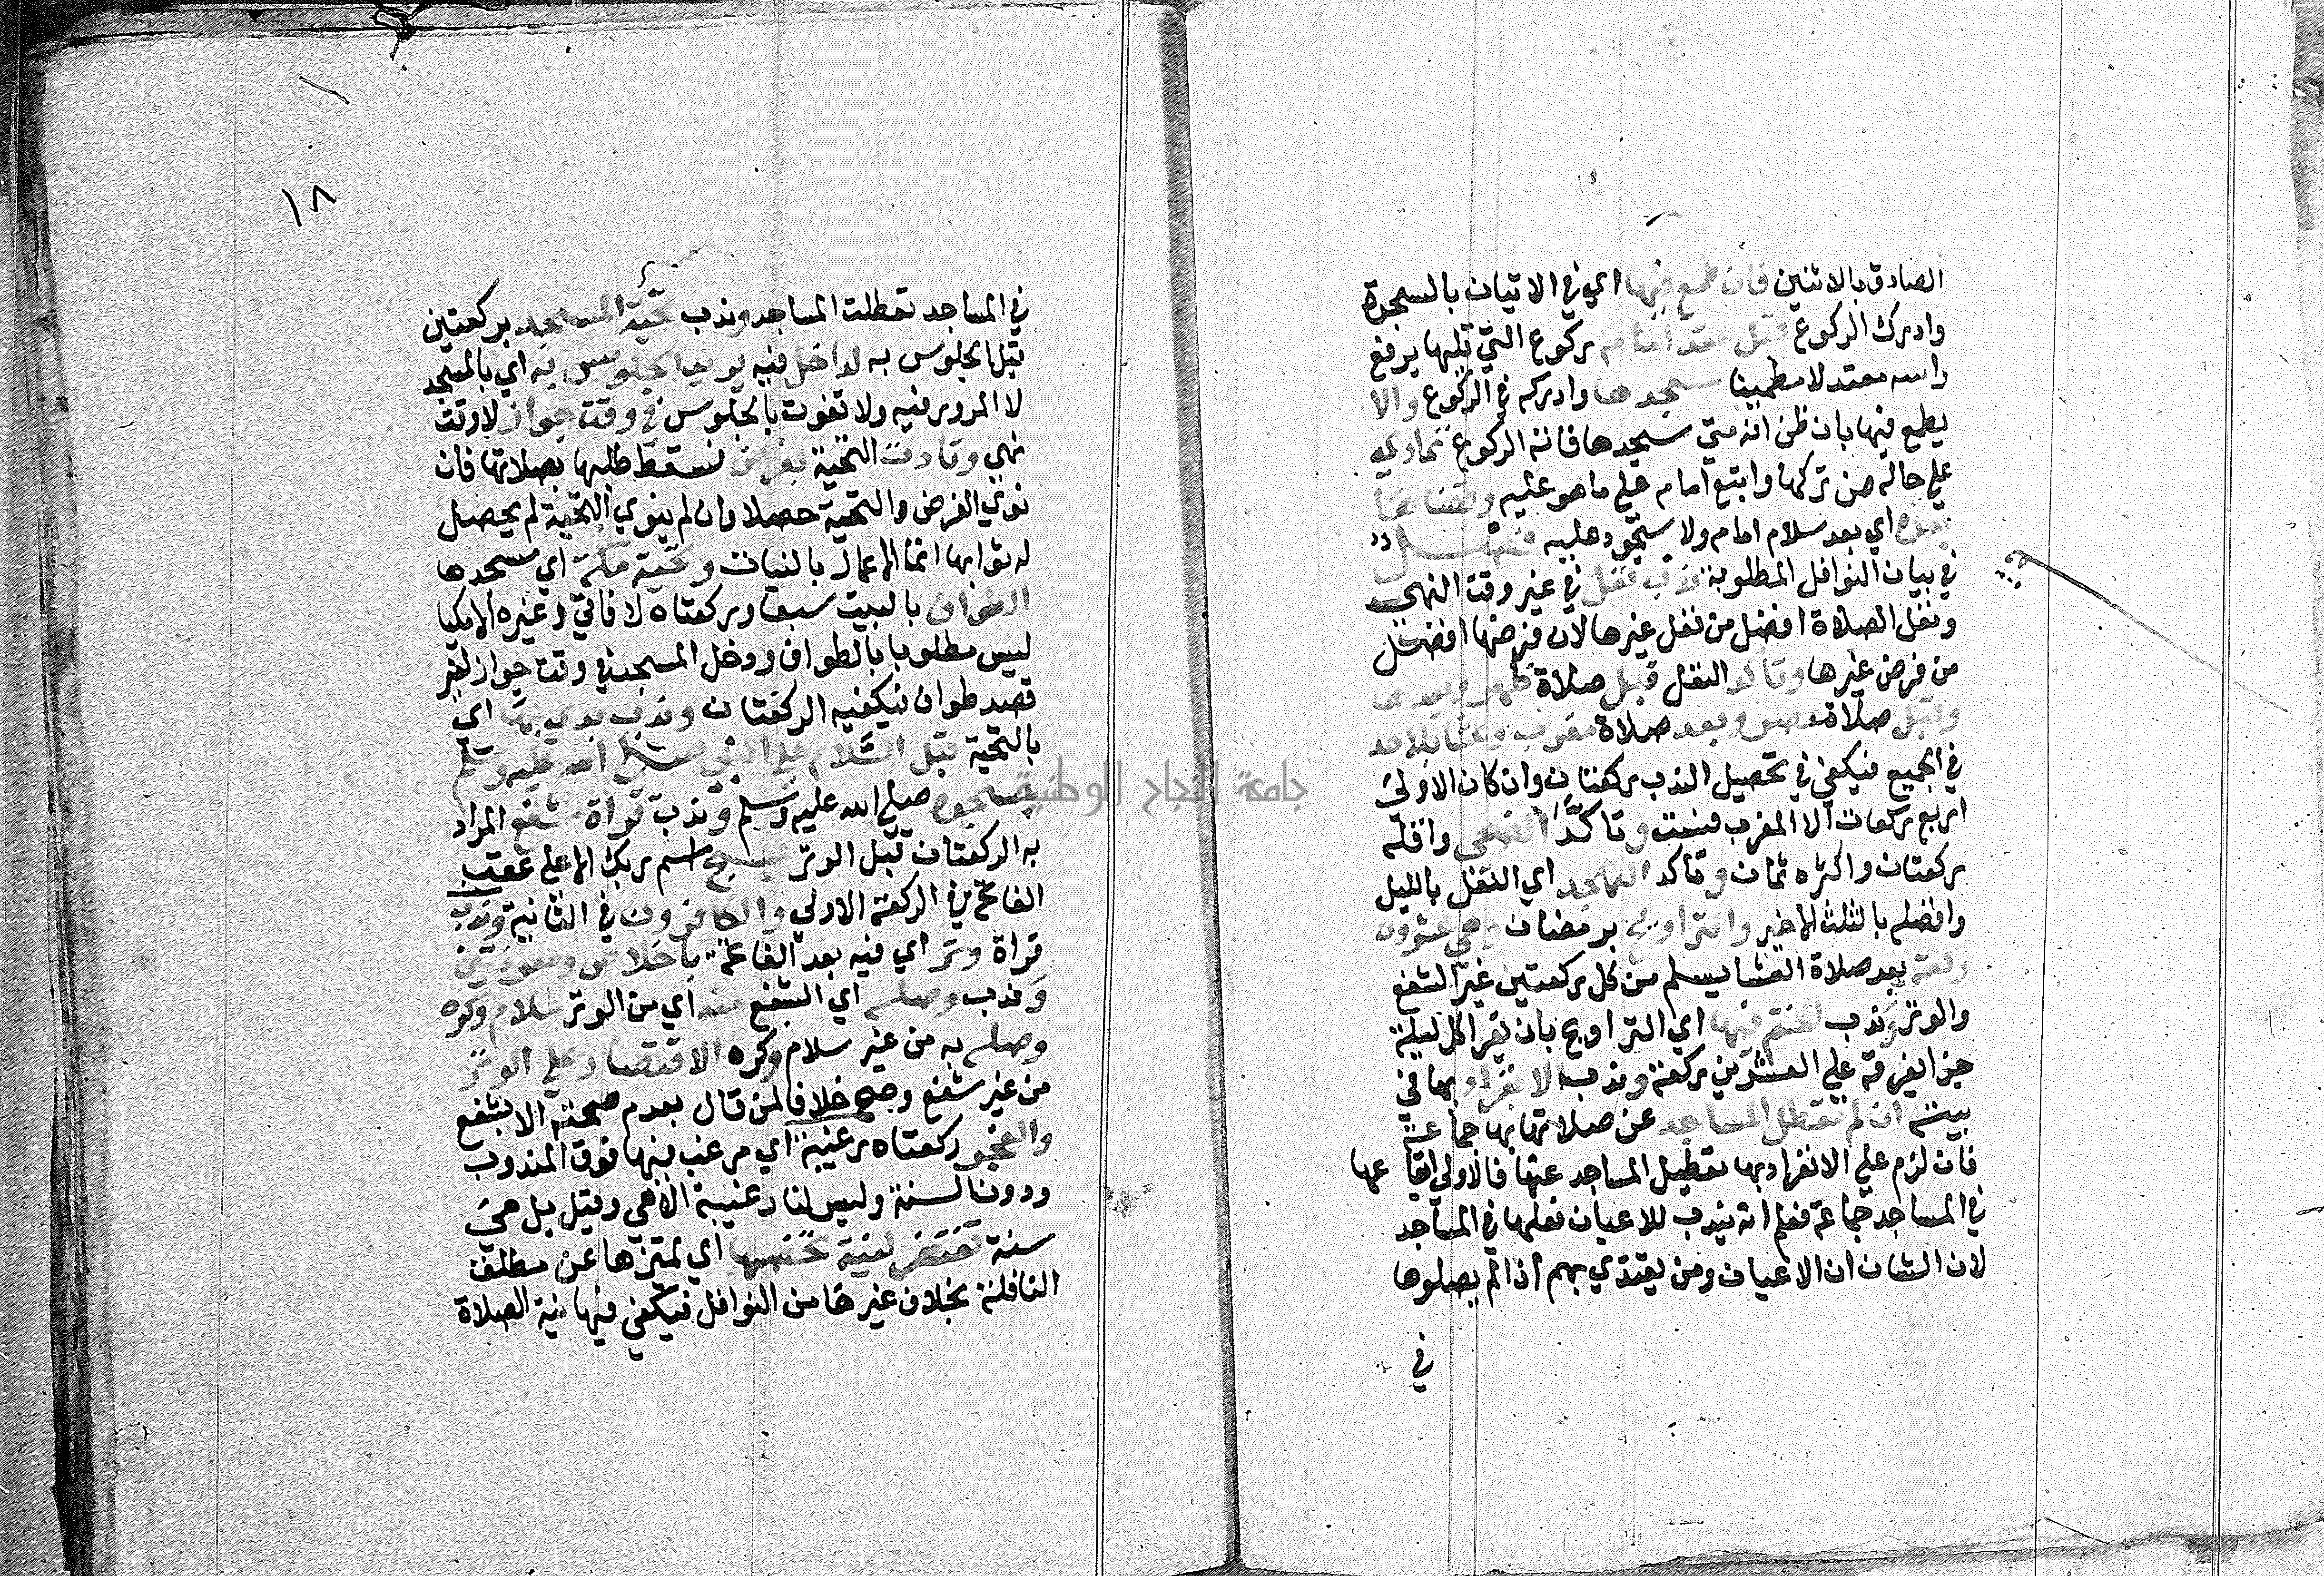 الصادق بالاثنين فان طمع فيها اي في الاتيان بالسجدة
وادرك الركوع قبل عقد امام ركوع التي تليها يرفع
راسه معتدلا مطمينا سجدها وادركه في الركوع والا
يطمع فيها بان ظن انه متي سجدها فاته الركوع تمادي
علي حاله من تركها واتبع امام علي ما هو عليه وقضاها
بعده اي بعد سلام امام ولا سجود عليه فصل
في بيان النوافل المطلوبة ندب نفل في غير وقت النهي
ونفل الصلاة افضل من نفل غيرها لان فرضها افضل
من فرض غيرها وتاكد النفل قبل صلاة ظهر وبعدها
وقبل صلاة عصر وبعد صلاة مغرب وعشا بلا حد
في الجميع فيكفي في تحصيل الندب ركعتان وان كان الاولي
اربع ركعات الا المغرب فست وتاكد الضحي واقله
ركعتان واكثره ثمان وتاكد التهجد اي النفل بالليل
وافضله بالثلث الاخير والتراويح برمضان وهي عشرون
ركعة بعد صلاة العشا يسلم من كل ركعتين غير الشفع
والوتر وندب الختم فيها اي التراويح بان يقرا كل ليلة
جزا يفرقه علي العشرين ركعة وندب الانفراد بها في
بيته ان لم تعطل المساجد عن صلاتها بها جماعة
فان لزم علي الانفراد بها تعطيل المساجد عنها فالاولي ايقاعها
في المساجد جماعة فعلم انه يندب للاعيان فعلها في المساجد
لان الشان ان الاعيان ومن يقتدي بهم اذا لم يصلوها
في
١٨
في المساجد تعطلت المساجد وندب تحية المسجد بركعتين
قبل الجلوس به لداخل فيه يريد الجلوس به اي بالمسجد
لا المرور فيه ولا تفوت بالجلوس في وقت جواز لا وقت
نهي وتادت التحية بفرض فسقط طلبها بصلاتها فان
نوي الفرض والتحية حصلا وان لم ينوي التحية لم يحصل
له ثوابها انما الاعمال بالنيات وتحية مكة اي مسجدها
الطواف بالبيت سبعا وركعتاه لافاقي وغيره الا مكيا
ليس مطلوبا بالطواف ودخل المسجد في وقت جواز لغير
قصد طواف فيكفيه الركعتان وندب بدء بها اي
بالتحية قبل السلام علي النبي صلي الله عليه وسلم
بمسجده صلي الله عليه وسلم وندب قراة شفع المراد
به الركعتان قبل الوتر بسبح اسم ربك الاعلي عقب
الفاتحة في الركعة الاولي والكافرون في الثانية وندب
قراة وتر اي فيه بعد الفاتحة باخلاص ومعوذتين
وندب وصله اي الشفع منه اي من الوتر سلام وكره
وصله به من غير سلام وكره الاقتصار علي الوتر
من غير شفع وصح خلافا لمن قال بعدم صحته الا بشفع
والفجر ركعتاه رغيبة اي مرغب فيها فوق المندوب
ودون السنة وليس لنا رغيبة الا هي وقيل بل هي
سنة تفتقر لنية تخصها اي تميزها عن مطلق
النافلة بخلاف غيرها من النوافل فيكفي فيها نية الصلاة
جامعة النجاح الوطنية